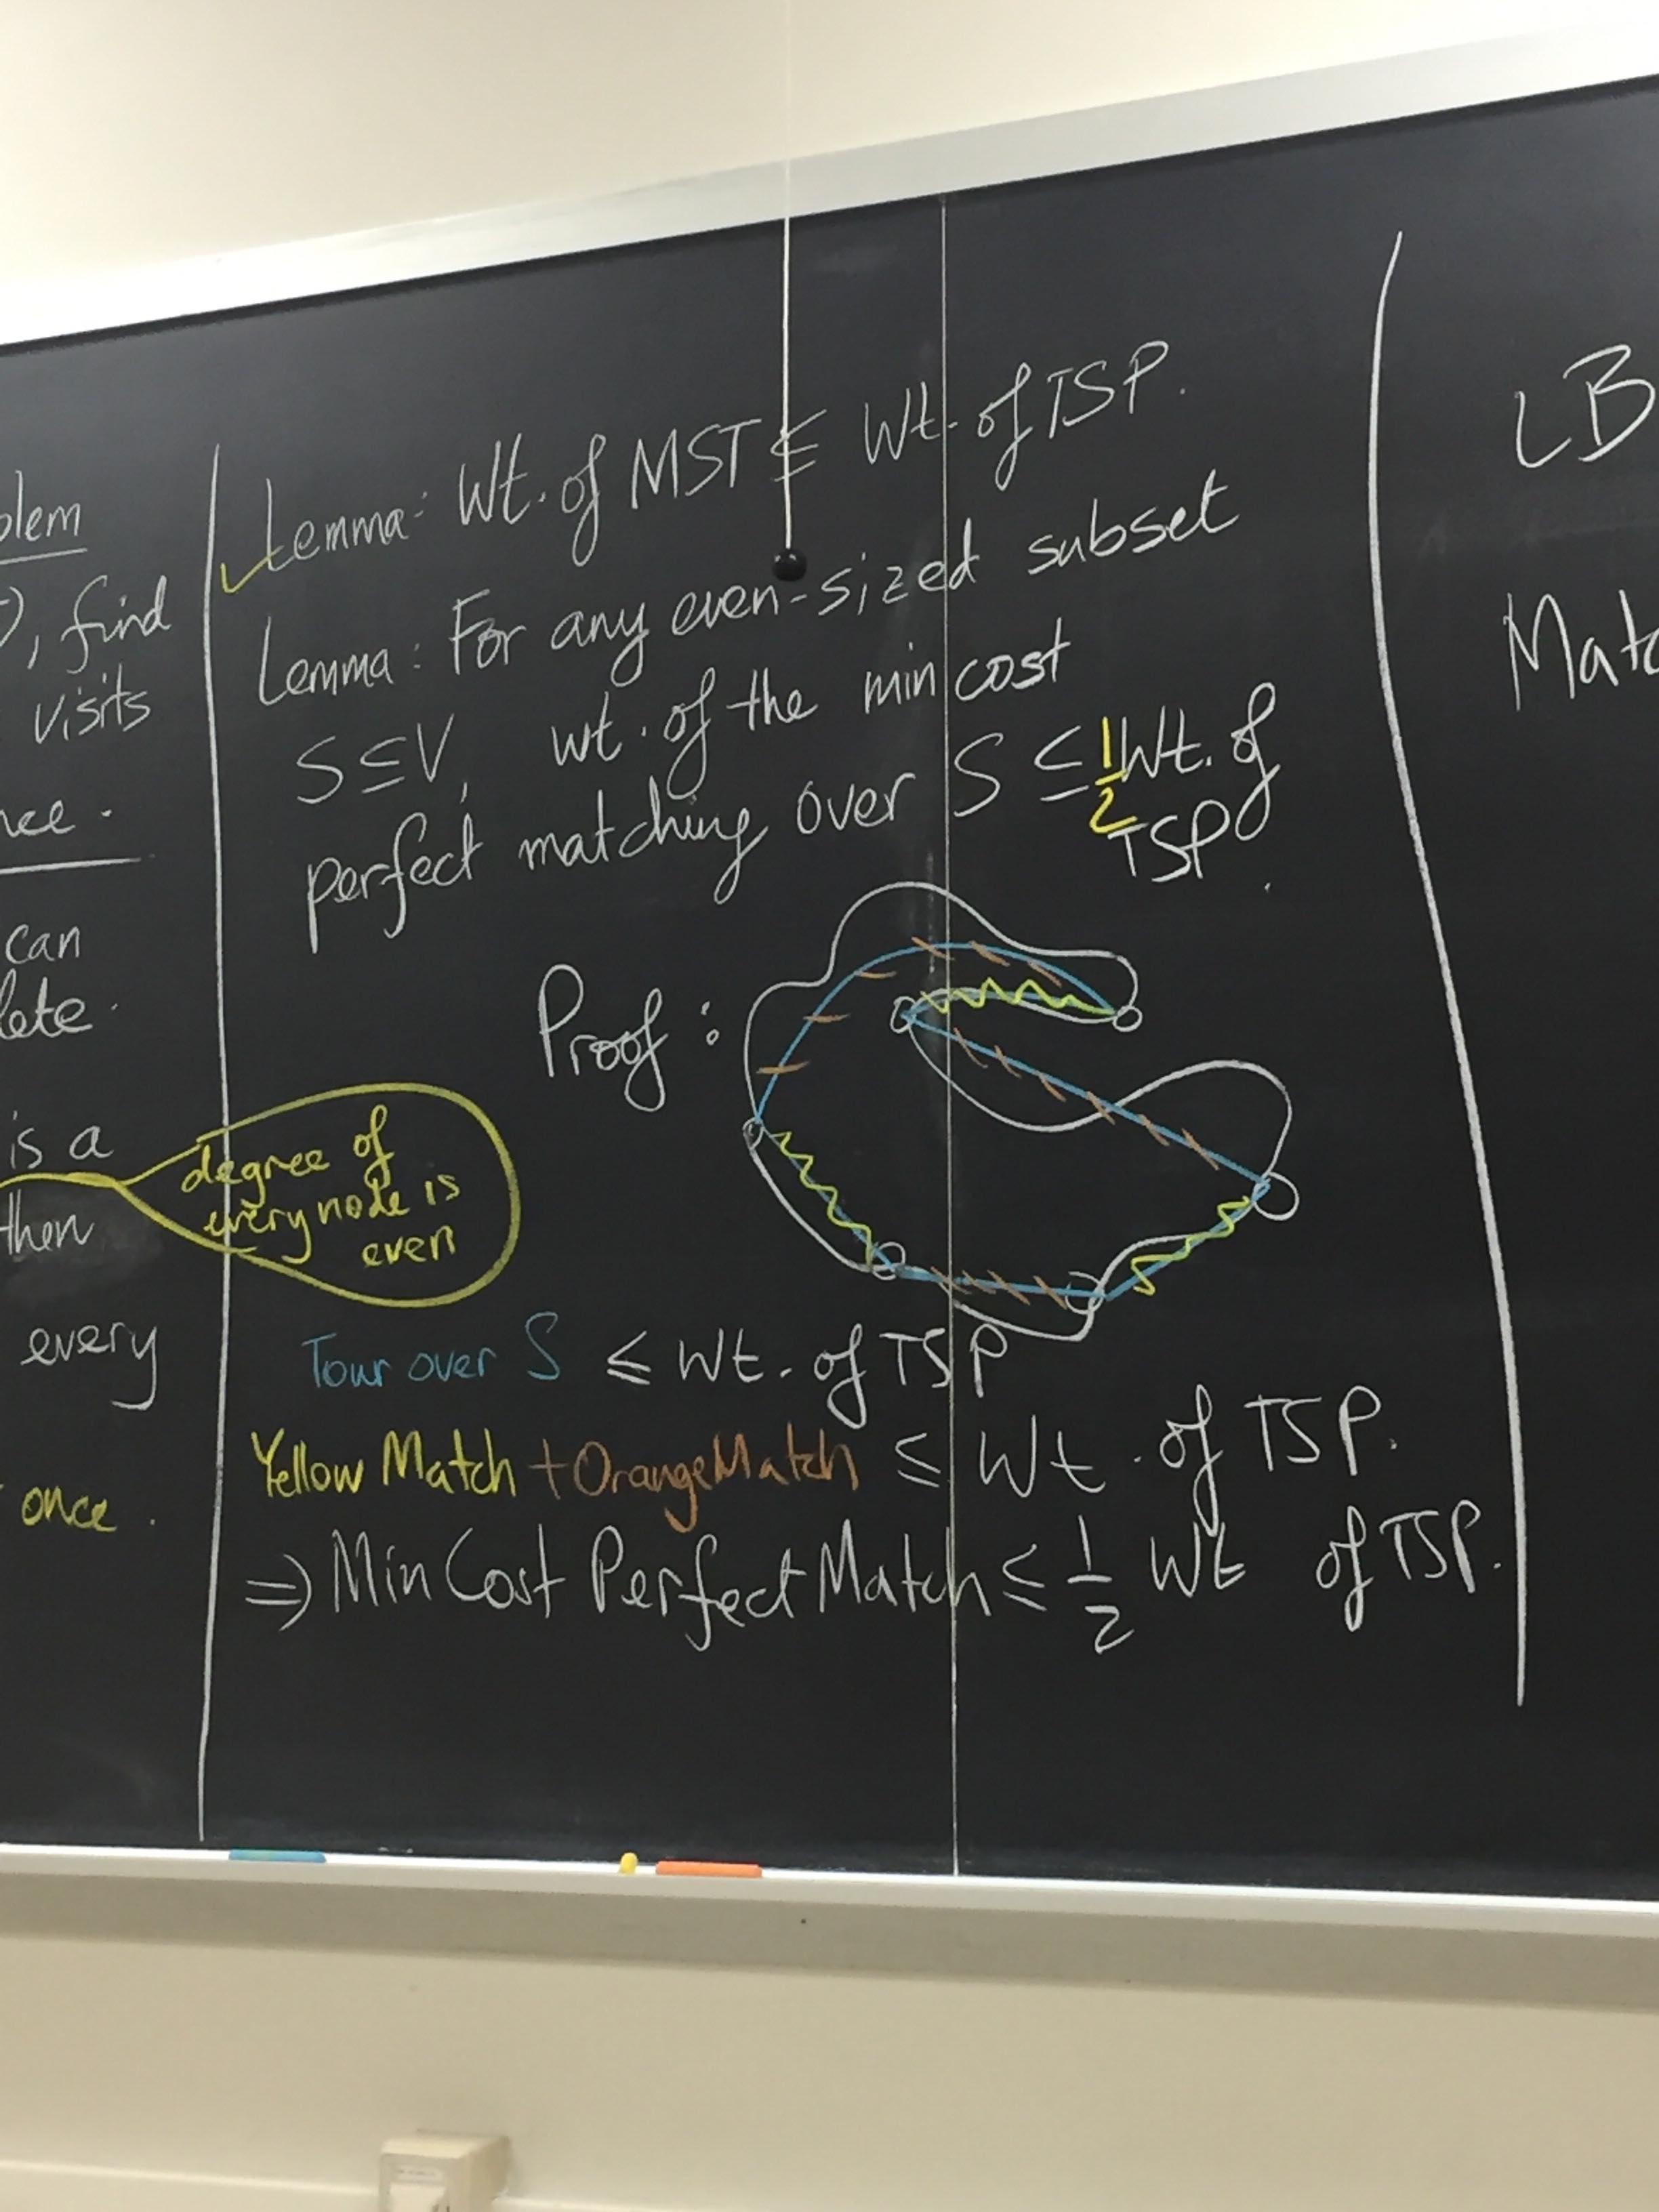 olem
), find
visits
nce.
can
lete.
is a
then
every
once.
Lemma: Wt. of MST ≤ Wt. of TSP.
Lemma: For any even-sized subset
S ⊆ V, wt. of the min cost
perfect matching over S ≤ 1/2 Wt. of
TSP.
Proof:
degree of
every node is
even
Tour over S ≤ Wt. of TSP
Yellow Match + Orange Match ≤ Wt. of TSP.
⇒ Min Cost Perfect Match ≤ 1/2 Wt of TSP.
LB
Matc